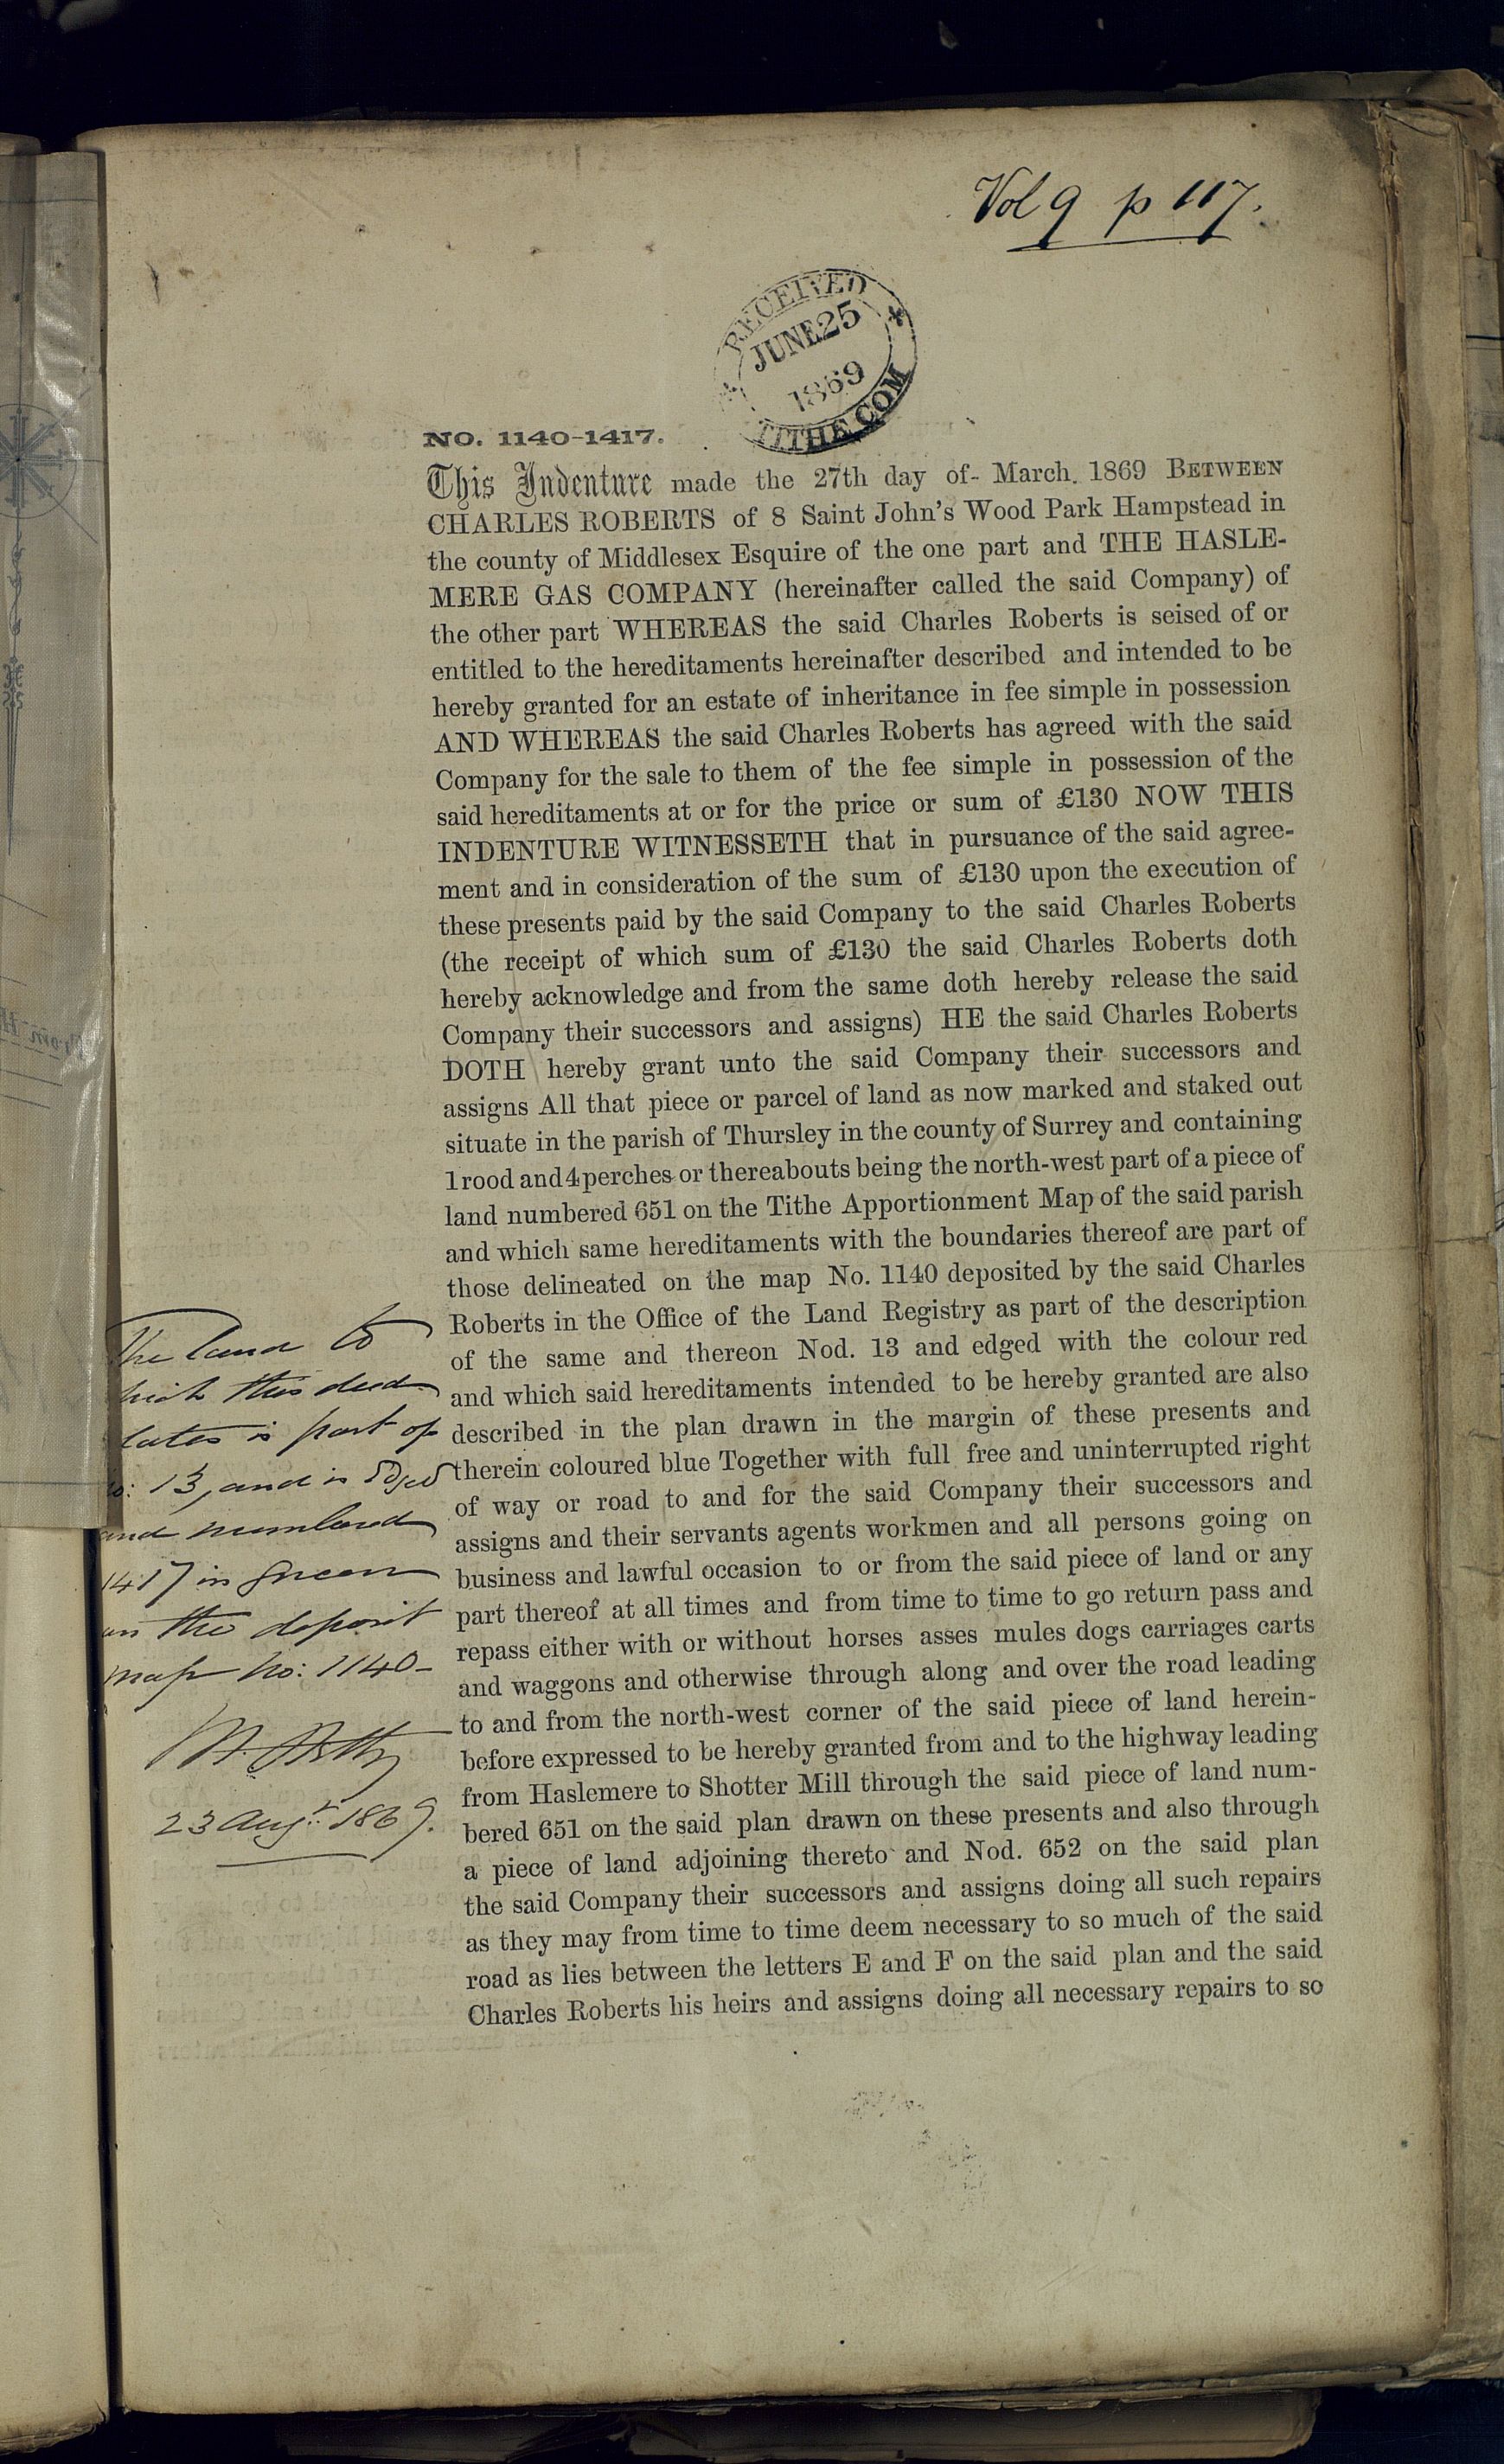 Vol 9 p 117.
RECEIVED
JUNE 25
1869
TITHE COM
NO. 1140-1417.
This Indenture made the 27th day of- March. 1869 BETWEEN
CHARLES ROBERTS of 8 Saint John's Wood Park Hampstead in
the county of Middlesex Esquire of the one part and THE HASLE-
MERE GAS COMPANY (hereinafter called the said Company) of
the other part WHEREAS the said Charles Roberts is seised of or
entitled to the hereditaments hereinafter described and intended to be
hereby granted for an estate of inheritance in fee simple in possession
AND WHEREAS the said Charles Roberts has agreed with the said
Company for the sale to them of the fee simple in possession of the
said hereditaments at or for the price or sum of £130 NOW THIS
INDENTURE WITNESSETH that in pursuance of the said agree-
ment and in consideration of the sum of £130 upon the execution of
these presents paid by the said Company to the said Charles Roberts
(the receipt of which sum of £130 the said Charles Roberts doth
hereby acknowledge and from the same doth hereby release the said
Company their successors and assigns) HE the said Charles Roberts
DOTH hereby grant unto the said Company their successors and
assigns All that piece or parcel of land as now marked and staked out
situate in the parish of Thursley in the county of Surrey and containing
1 rood and 4 perches or thereabouts being the north-west part of a piece of
land numbered 651 on the Tithe Apportionment Map of the said parish
and which same hereditaments with the boundaries thereof are part of
those delineated on the map No. 1140 deposited by the said Charles
Roberts in the Office of the Land Registry as part of the description
of the same and thereon Nod. 13 and edged with the colour red
and which said hereditaments intended to be hereby granted are also
described in the plan drawn in the margin of these presents and
therein coloured blue Together with full free and uninterrupted right
of way or road to and for the said Company their successors and
assigns and their servants agents workmen and all persons going on
business and lawful occasion to or from the said piece of land or any
part thereof at all times and from time to time to go return pass and
repass either with or without horses asses mules dogs carriages carts
and waggons and otherwise through along and over the road leading
to and from the north-west corner of the said piece of land herein-
before expressed to be hereby granted from and to the highway leading
from Haslemere to Shotter Mill through the said piece of land num-
bered 651 on the said plan drawn on these presents and also through
a piece of land adjoining thereto and Nod. 652 on the said plan
the said Company their successors and assigns doing all such repairs
as they may from time to time deem necessary to so much of the said
road as lies between the letters E and F on the said plan and the said
Charles Roberts his heirs and assigns doing all necessary repairs to so
The land to
this deed
is part of
13, and is Edged
and numbered
1417 in green
on the deposit
map No: 1140-
23 Augt. 1869.